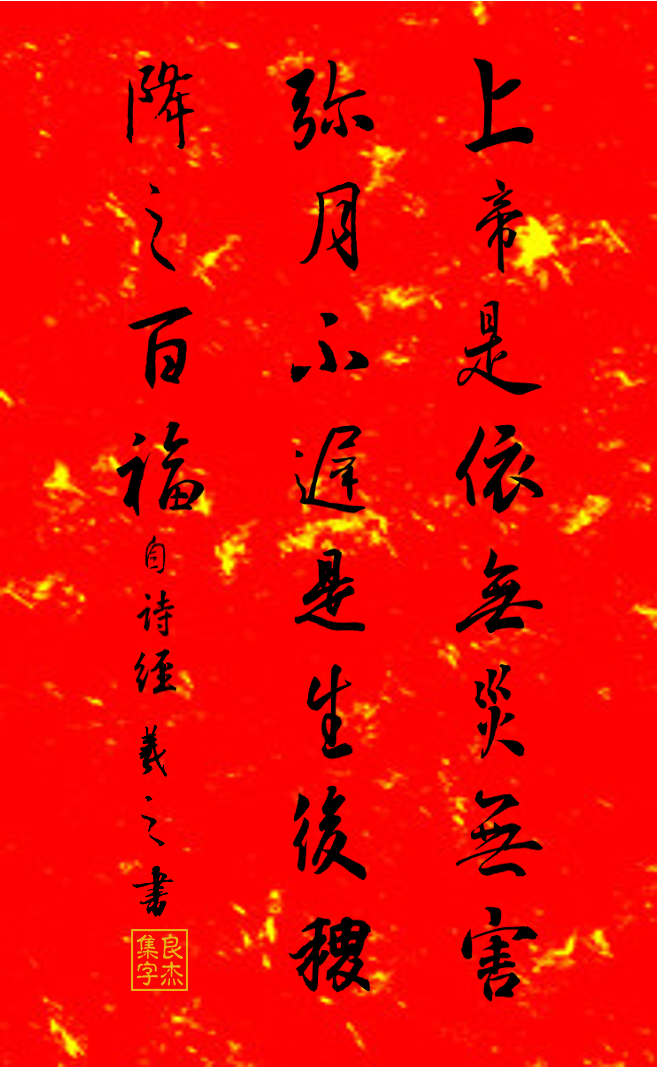 上帝是依無災無害
弥月不遲是生後稷
降之百福
自诗經羲之書
良杰
集字